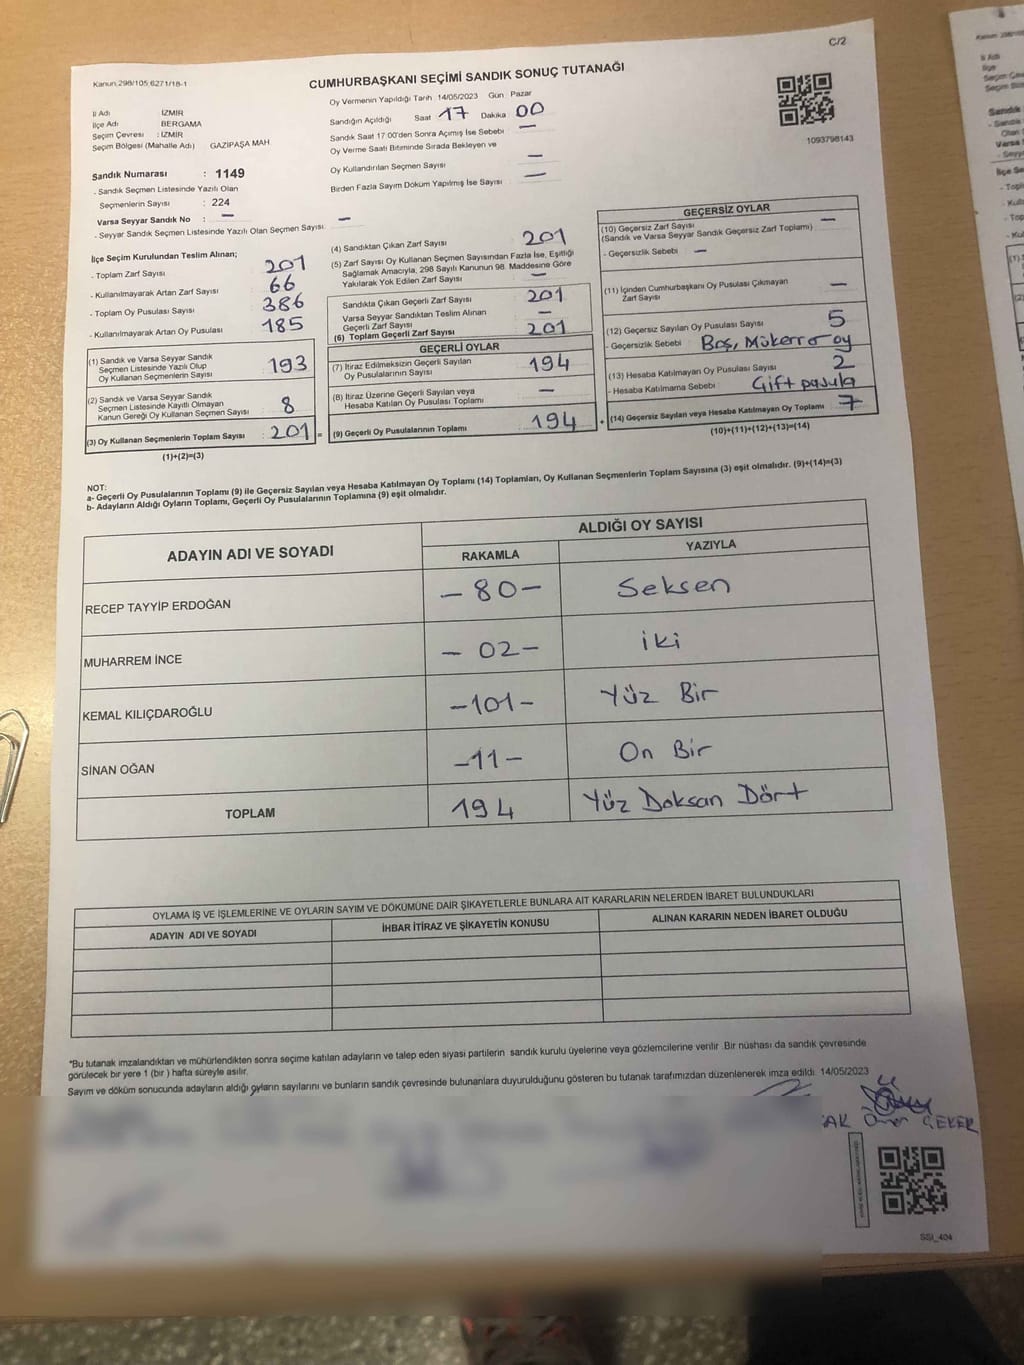 C/2
Kanun 298/105 6271/18-1
CUMHURBAŞKANI SEÇİMİ SANDIK SONUÇ TUTANAĞI
İl Adı : İZMİR
İlçe Adı : BERGAMA
Seçim Çevresi : İZMİR
Seçim Bölgesi (Mahalle Adı) GAZİPAŞA MAH
Oy Vermenin Yapıldığı Tarih 14/05/2023 Gün Pazar
Sandığın Açıldığı Saat 17 Dakika 00
Sandık Saat 17:00'den Sonra Açımış İse Sebebi —
Oy Verme Saati Bitiminde Sırada Bekleyen ve
Oy Kullandırılan Seçmen Sayısı —
Birden Fazla Sayım Döküm Yapılmış İse Sayısı —
1093798143
Sandık Numarası : 1149
- Sandık Seçmen Listesinde Yazılı Olan
Seçmenlerin Sayısı : 224
Varsa Seyyar Sandık No : —
- Seyyar Sandık Seçmen Listesinde Yazılı Olan Seçmen Sayısı: —
İlçe Seçim Kurulundan Teslim Alınan;
- Toplam Zarf Sayısı : 201
- Kullanılmayarak Artan Zarf Sayısı : 66
- Toplam Oy Pusulası Sayısı : 386
- Kullanılmayarak Artan Oy Pusulası : 185
(1) Sandık ve Varsa Seyyar Sandık
Seçmen Listesinde Yazılı Olup
Oy Kullanan Seçmenlerin Sayısı : 193
(2) Sandık ve Varsa Seyyar Sandık
Seçmen Listesinde Kayıtlı Olmayan
Kanun Gereği Oy Kullanan Seçmen Sayısı : 8
(3) Oy Kullanan Seçmenlerin Toplam Sayısı : 201 =
(1)+(2)=(3)
(4) Sandıktan Çıkan Zarf Sayısı : 201
(5) Zarf Sayısı Oy Kullanan Seçmen Sayısından Fazla İse, Eşitliği
Sağlamak Amacıyla, 298 Sayılı Kanunun 98. Maddesine Göre
Yakılarak Yok Edilen Zarf Sayısı : —
Sandıkta Çıkan Geçerli Zarf Sayısı : 201
Varsa Seyyar Sandıktan Teslim Alınan
Geçerli Zarf Sayısı : —
(6) Toplam Geçerli Zarf Sayısı : 201
GEÇERLİ OYLAR
(7) İtiraz Edilmeksizin Geçerli Sayılan
Oy Pusulalarının Sayısı : 194
(8) İtiraz Üzerine Geçerli Sayılan veya
Hesaba Katılan Oy Pusulası Toplamı : —
(9) Geçerli Oy Pusulalarının Toplamı : 194 +
GEÇERSİZ OYLAR
(10) Geçersiz Zarf Sayısı : —
(Sandık ve Varsa Seyyar Sandık Geçersiz Zarf Toplamı)
- Geçersizlik Sebebi : —
(11) İçinden Cumhurbaşkanı Oy Pusulası Çıkmayan
Zarf Sayısı : —
(12) Geçersiz Sayılan Oy Pusulası Sayısı : 5
- Geçersizlik Sebebi : Boş, Mükerrer oy
(13) Hesaba Katılmayan Oy Pusulası Sayısı : 2
- Hesaba Katılmama Sebebi : Çift pusula
(14) Geçersiz Sayılan veya Hesaba Katılmayan Oy Toplamı : 7
(10)+(11)+(12)+(13)=(14)
NOT:
a- Geçerli Oy Pusulalarının Toplamı (9) ile Geçersiz Sayılan veya Hesaba Katılmayan Oy Toplamı (14) Toplamları, Oy Kullanan Seçmenlerin Toplam Sayısına (3) eşit olmalıdır. (9)+(14)=(3)
b- Adayların Aldığı Oyların Toplamı, Geçerli Oy Pusulalarının Toplamına (9) eşit olmalıdır.
ADAYIN ADI VE SOYADI
ALDIĞI OY SAYISI
RAKAMLA YAZIYLA
RECEP TAYYİP ERDOĞAN -80- Seksen
MUHARREM İNCE -02- iki
KEMAL KILIÇDAROĞLU -101- Yüz Bir
SİNAN OĞAN -11- On Bir
TOPLAM 194 Yüz Doksan Dört
OYLAMA İŞ VE İŞLEMLERİNE VE OYLARIN SAYIM VE DÖKÜMÜNE DAİR ŞİKAYETLERLE BUNLARA AİT KARARLARIN NELERDEN İBARET BULUNDUKLARI
ADAYIN ADI VE SOYADI İHBAR İTİRAZ VE ŞİKAYETİN KONUSU ALINAN KARARIN NEDEN İBARET OLDUĞU
*Bu tutanak imzalandıktan ve mühürlendikten sonra seçime katılan adayların ve talep eden siyasi partilerin sandık kurulu üyelerine veya gözlemcilerine verilir .Bir nüshası da sandık çevresinde
görülecek bir yere 1 (bir ) hafta süreyle asılır.
Sayım ve döküm sonucunda adayların aldığı oyların sayılarını ve bunların sandık çevresinde bulunanlara duyurulduğunu gösteren bu tutanak tarafımızdan düzenlenerek imza edildi. 14/05/2023
Ömer ÇEKER
SSI_404